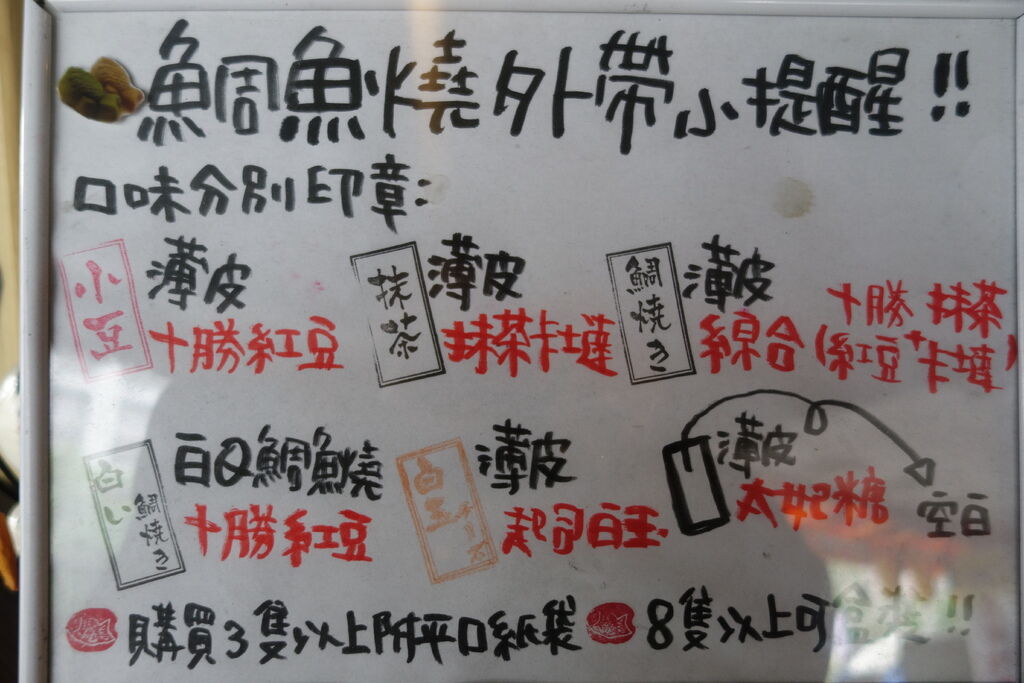 鯛魚燒外帶小提醒!!
口味分別印章:
小豆 薄皮 十勝紅豆
抹茶 薄皮 抹茶卡噠
鯛焼き 薄皮 綜合(十勝紅豆+抹茶卡噠)
白い鯛焼き 白Q鯛魚燒 十勝紅豆
白玉チーズ 薄皮 起司白玉
薄皮 太妃糖 空白
購買3隻以上附平口紙袋
8隻以上可盒裝!!